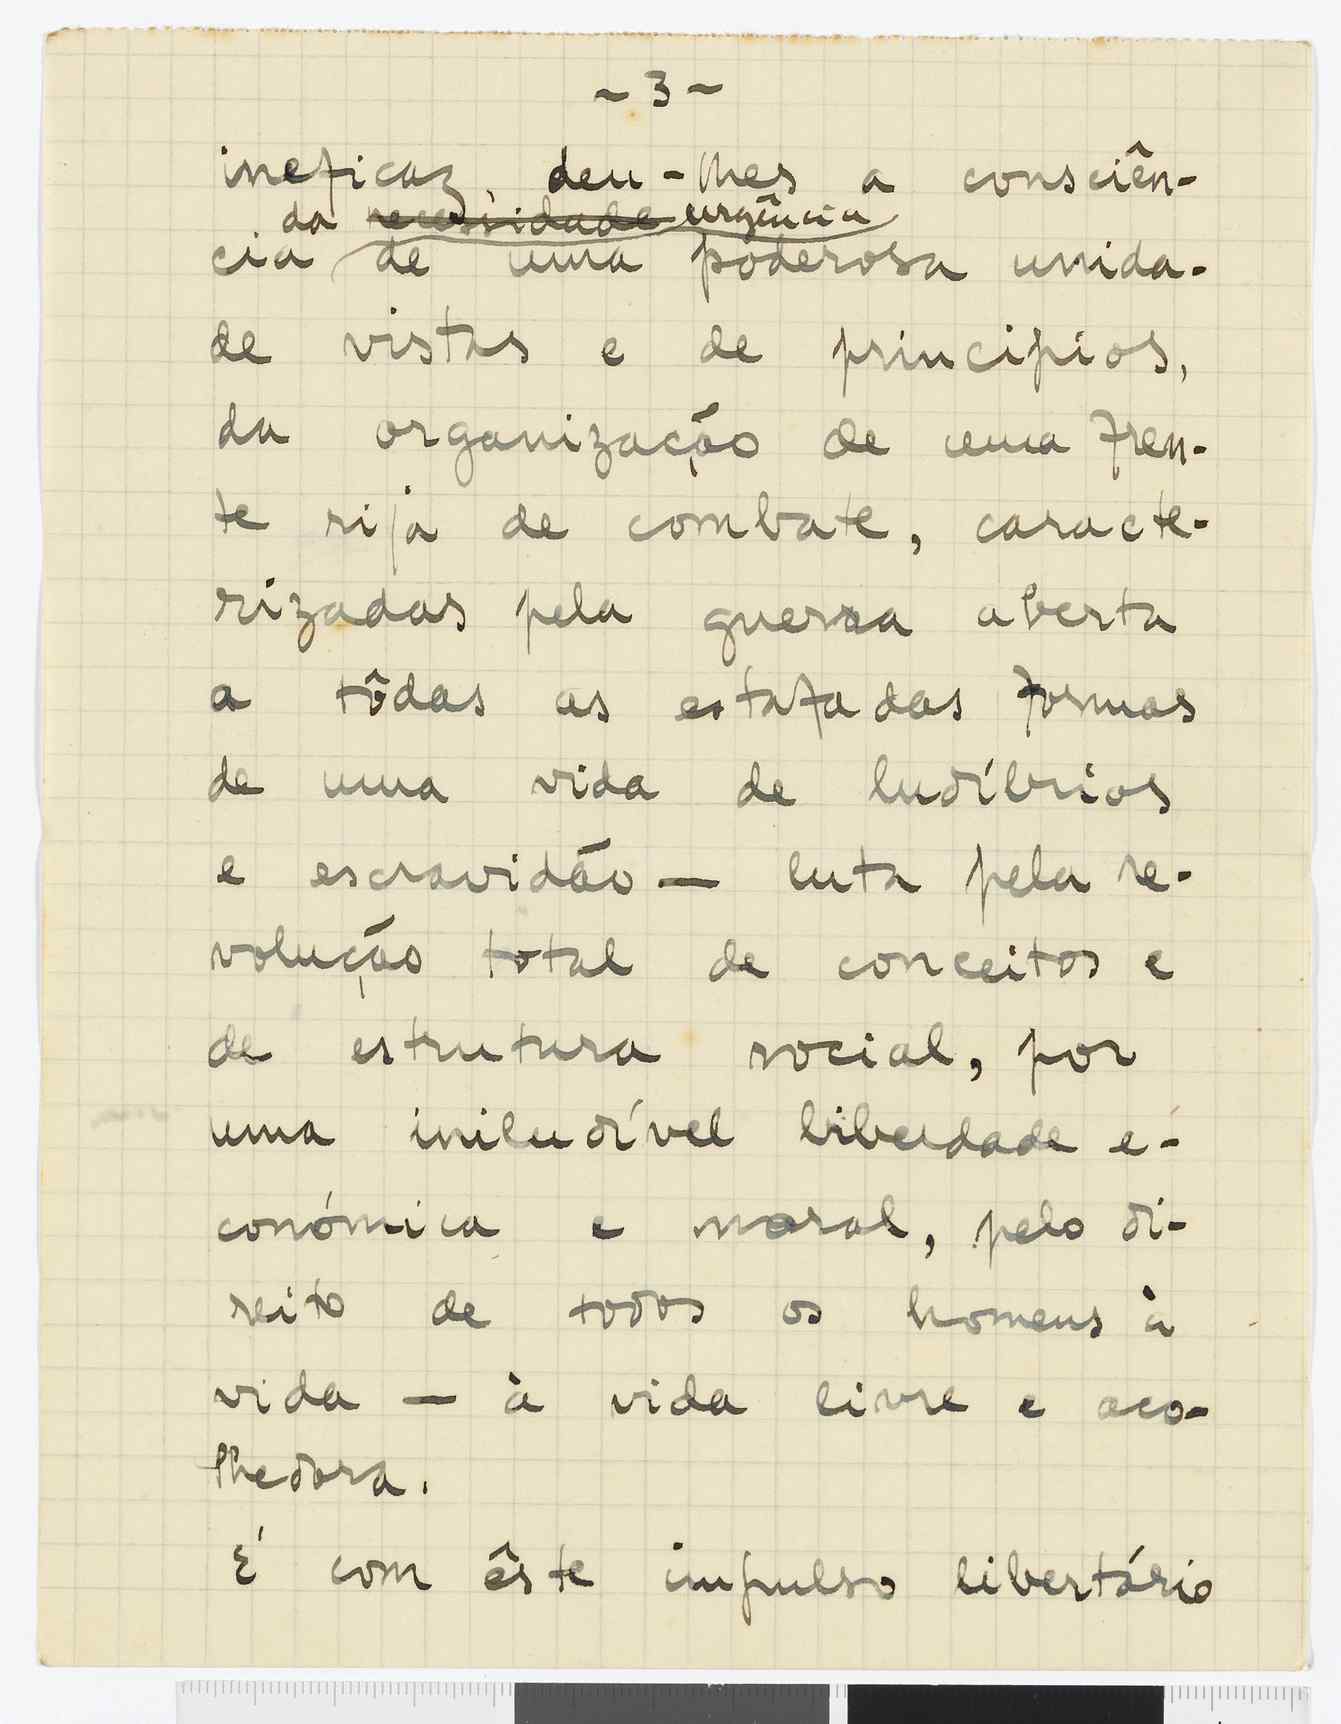 ~ 3 ~
ineficaz, deu-lhes a consciên-
da necessidade urgência
cia de uma poderosa unida-
de vistas e de princípios,
da organização de uma fren-
te rija de combate, caracte-
rizadas pela guerra aberta
a tôdas as estafadas formas
de uma vida de ludíbrios
e escravidão — luta pela re-
volução total de conceitos e
de estrutura social, por
uma iniludível liberdade e-
conómica e moral, pelo di-
reito de todos os homens à
vida — à vida livre e aco-
lhedora.
É com êste impulso libertário